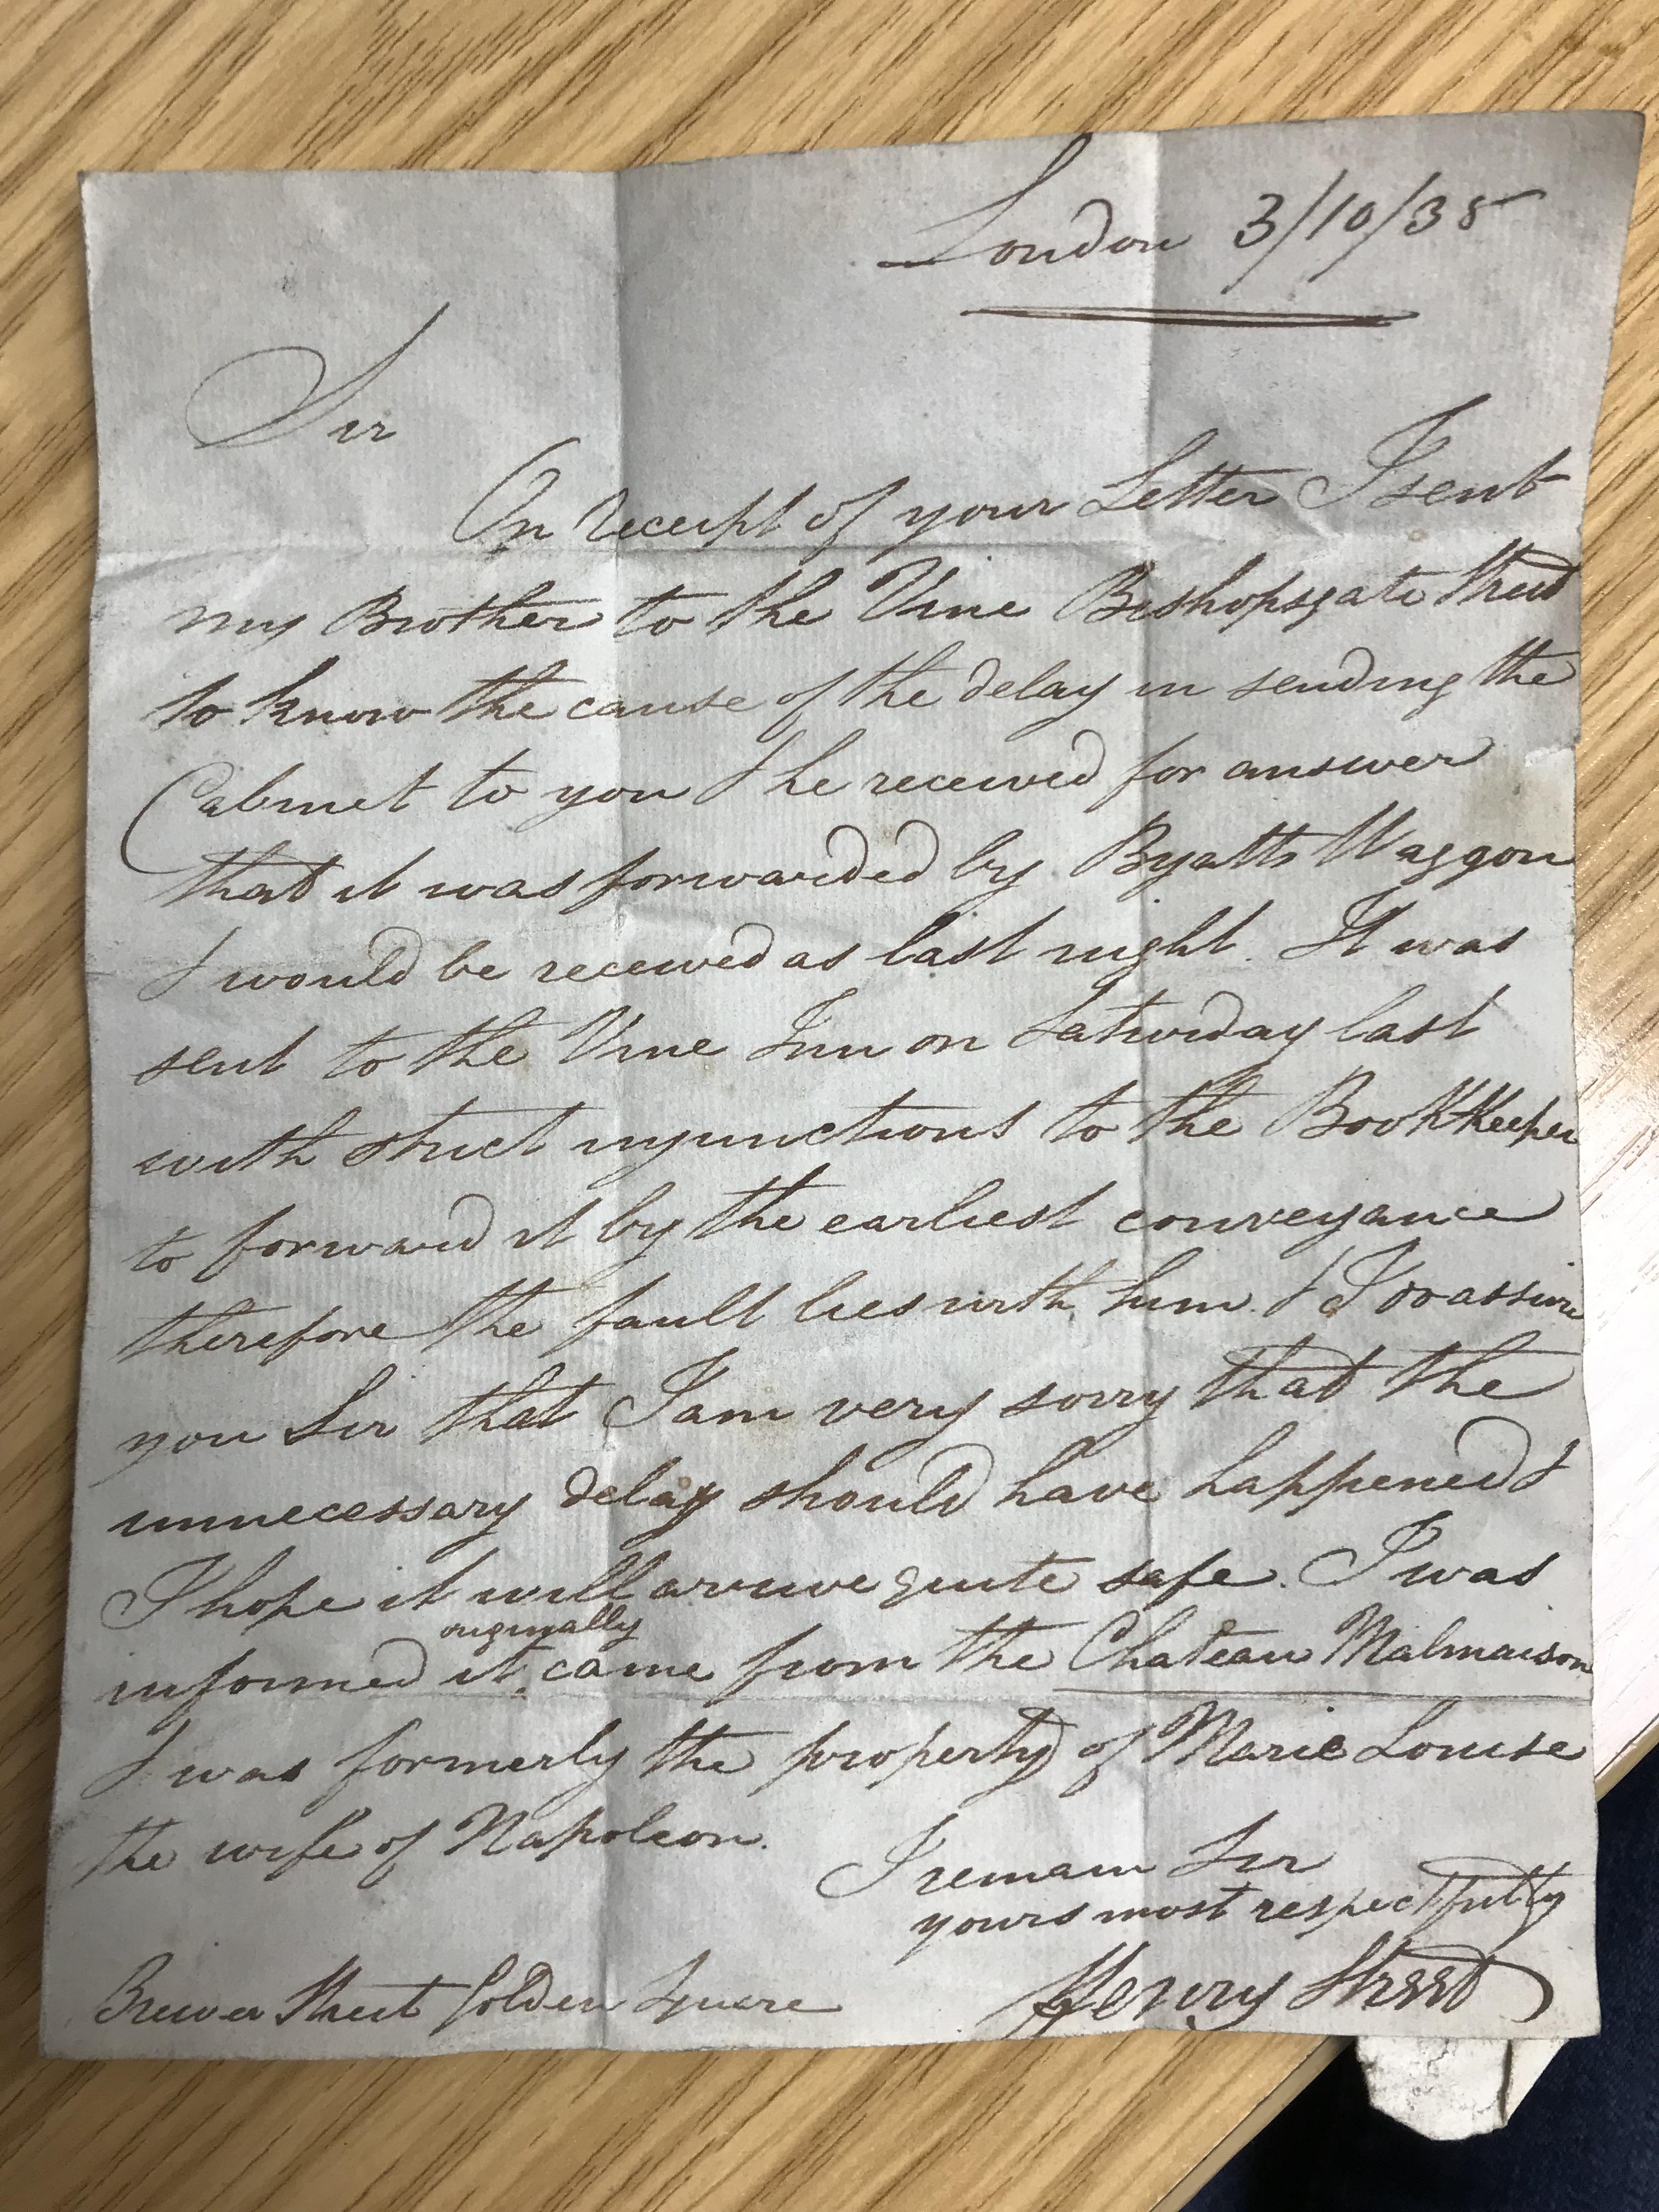 London 3/10/35
Sir
On receipt of your Letter I sent
my Brother to the Vine Bishopsgate Street
to know the cause of the delay in sending the
Cabinet to you & he received for answer
that it was forwarded by Byatts Waggon
& would be received as last night. It was
sent to the Vine Inn on Saturday last
with strict injunctions to the BookKeeper
to forward it by the earliest conveyance
therefore the fault lies with him. & I do assure
you Sir that I am very sorry that the
unnecessary delay should have happened &
I hope it will arrive quite safe. I was
originally
informed it, came from the Chateau Malmaison
& was formerly the property of Marie Louise
the wife of Napoleon.
I remain Sir
yours most respectfully
Henry Street
Brewer Street Golden Square